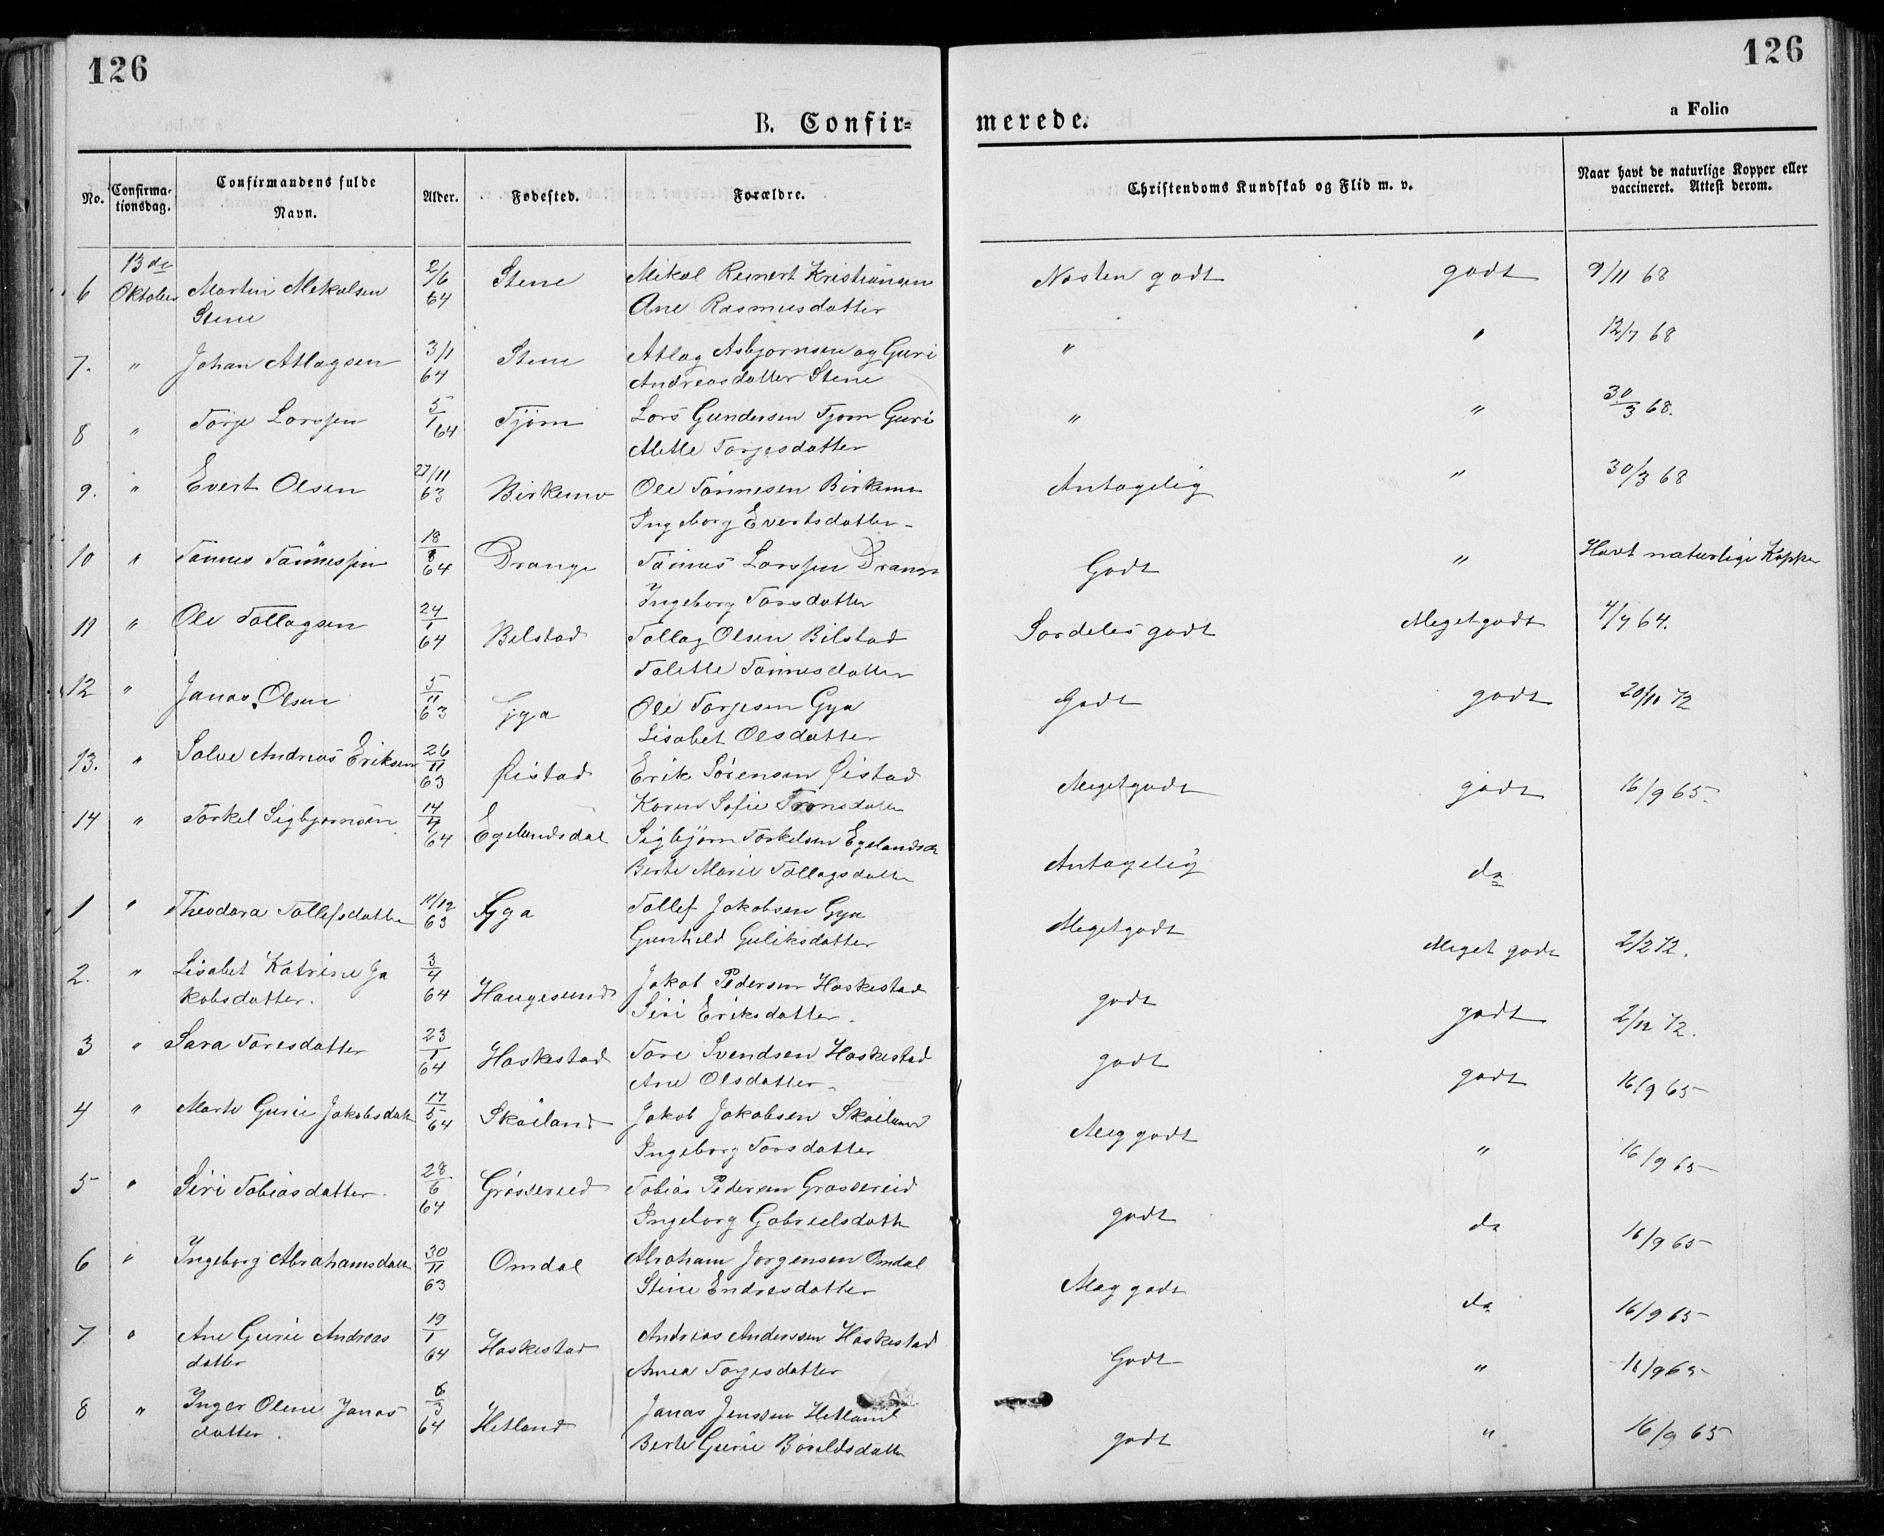 126
126
B. Confir=
merede.
a Folio
No.
Confirma-
tionsdag.
Confirmandens fulde
Navn.
Alder.
Fødested.
Forældre.
Christendoms Kundskab og Flid m. v.
Naar havt de naturlige Kopper eller
vaccineret. Attest derom.
13de
6 Oktober Martin Mekalsen 2/6 64 Stene Mikal Reinert Kristiansen Nesten godt godt 9/11 68
Stene Ane Rasmusdatter
7. " Johan Atlagsen 3/1 64 Stene Atlag Asbjornsen og Guri " " 12/7 68
Andreasdatter Stene
8 " Torje Larssen 5/1 64 Tjörn Lars Gundersen Tjorn Guri " " 30/3 68.
Mette Torjesdatter
9. " Evert Olsen 27/11 63 Birkemo Ole Tönnesen Birkemo Antagelig " 30/3 68
Ingeborg Evertsdatter
10 " Tönnes Tönnessen 18/8 64 Drange Tönnes Larssen Drange Godt " Havt naturlige Kopper
Ingeborg Torsdatter
11 " Ole Tollagsen 24/1 64 Bilstad Tollag Olsen Bilstad Sardeles godt Meget godt 4/7 64.
Talette Tönnesdatter
12 " Jonas Olsen 5/11 63 Gya Ole Torjesen Gya Godt godt 20/11 72
Lisabet Olsdatter
13. " Salve Andreas Eriksen 26/11 63 Øistad Erik Sörensen Øistad Meget godt godt 16/9 65.
Karen Sofie Tronsdatter
14 " Torkel Sigbjornsen 14/4 64 Egelandsdal Sigbjörn Torkelsen Egelandsd Antagelig do
Berte Marie Tollagsdatter
1 " Theodora Tollefsdatter 11/12 63 Gya Tollef Jakobsen Gya Meget godt Meget godt 2/2 72.
Gunhild Guliksdatter
2. " Lisabet Katrine Ja 3/4 64 Haugesund Jakob Pedersen Haskestad godt godt 2/12 72.
kobsdatter. Siri Eriksdatter.
3 " Sara Toresdatter 23/1 64 Haskestad Tore Svendsen Haskestad godt godt 16/9 65
Ane Olsdatter
4 " Marte Gurie Jakobsdatt 17/5 64 Skåiland Jakob Jakobsen Skåiland Meg godt " 16/9 65
Ingeborg Torsdatter
5 " Siri Tobiasdatter. 28/6 64 Grösereid Tobias Pedersen Grosereid godt do 16/9 65
Ingeborg Gabrielsdatt
6 " Ingeborg Abrahamsdatt 30/11 63 Omdal Abraham Jorgensen Omdal Meg godt do 16/9 65
Stine Endresdatter
7 " Ane Gurie Andreas 19/1 64 Haskestad Andreas Anderssen Haskestad Godt " 16/9 65
datter Anna Torjesdatter
8 " Inger Oline Jonas 6/3 64 Hetland Jonas Jenssen Hetland godt " 16/9 65
datter. Berte Gurie Bårildsdatt